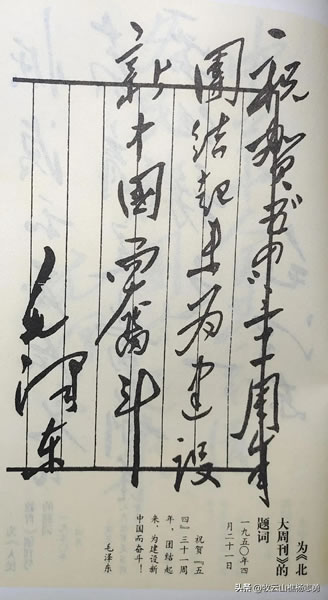 祝贺五四三十一周年
團结起来为建設
新中國而奮斗
毛泽东
为《北
大周刊》的
题词
一九五〇年四
月二十一日
祝贺『五
四』三十一周
年，团结起
来，为建设新
中国而奋斗！
毛泽东
头条 @牧云山樵杨志勇